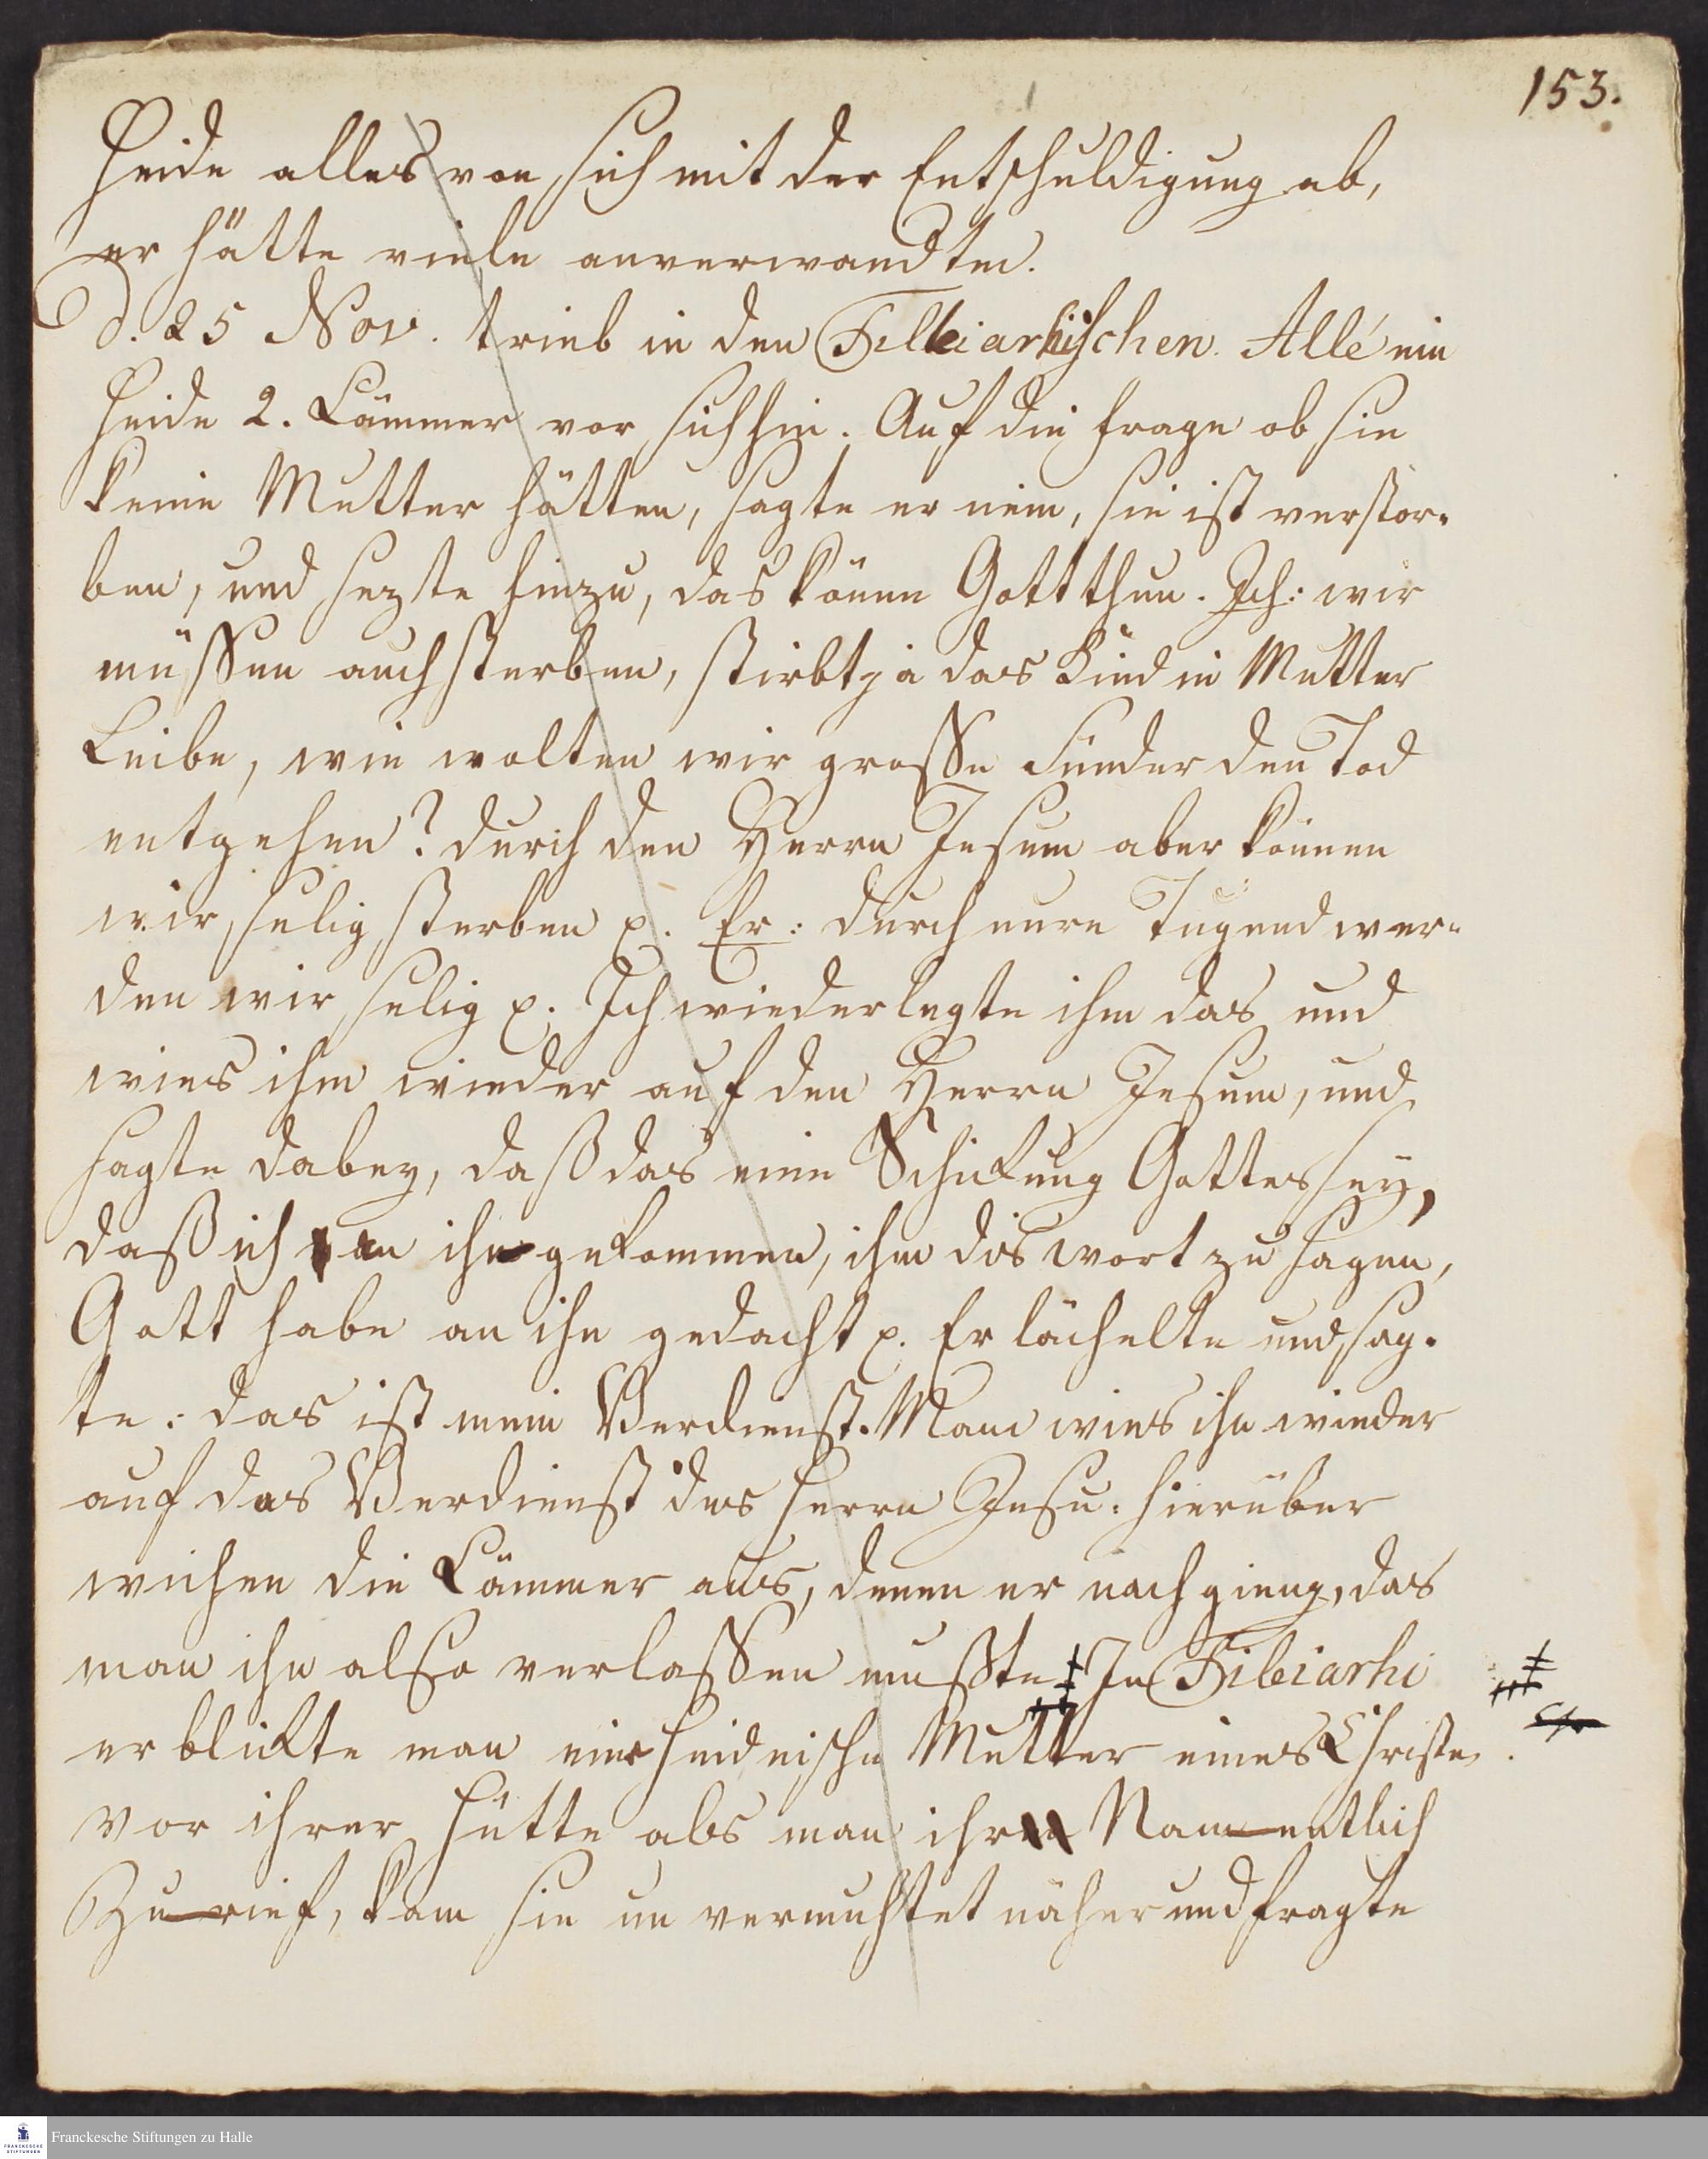 153.
Heide alles von sich mit der Entschuldigung ab,
er hätte viele anverwandten.
d. 25 Nov. trieb in den Tilleiarhischen Allé ein
Heide 2. Lämmer vor sich hin. Auf die frage ob sie
keine Mutter hätten, sagte er nein, sie ist verstor-
ben, und sezte hinzu, das könne Gott thun. Ich: wir
müssen auch sterben, stirbt ja das Kind in Mutter
Leibe, wie wolten wir grosse Sünder den Tod
entgehen? durch den Herrn Jesum aber können
wir selig sterben p. Er: durch eure Tugend wer-
den wir selig p. Ich wiederlegte ihm das und
wies ihm wieder auf den Herrn Jesum, und
sagte dabey, daß das eine Schikung Gottes sey,
daß ich an ihn gekommen, ihm dis wort zu sagen,
Gott habe an ihn gedacht p. Er lächelte und sag-
te: das ist mein Verdienst. Man wies ihn wieder
auf das Verdienst des Herrn Jesu: hierüber
wichen die Lämmer aus, denen er nachgieng, das
man ihn also verlassen mußte. In Tibiarhi
erblikte man eine heidnische Mutter eines Christen
vor ihrer Hütte als man ihr Namentlich
Zurief, kam sie un vermuhtet näher und fragte
Franckesche Stiftungen zu Halle